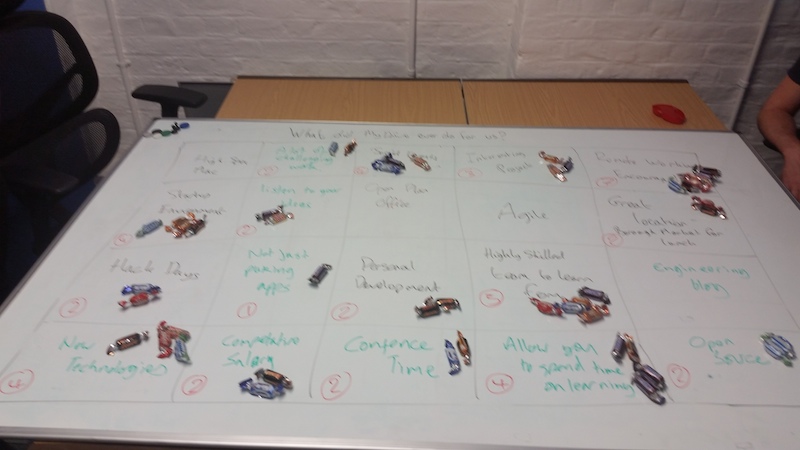 What did Mobica ever do for us?
High End
Mac
A lot of
challenging
work
Interesting
People
Remote Working
Encouraged
Startup
Environment
5
Listen to your
ideas
2
Open Plan
Office
Agile
Great
location
Borough Market for
lunch
Hack Days
3
Not just
parking
apps
1
Personal
Development
2
Highly Skilled
team to learn
from
5
Engineering
blog
New
Technologies
4
Competative
Salary
2
Conference
Time
2
Allow you
to spend time
on learning
4
Open
Souce
2